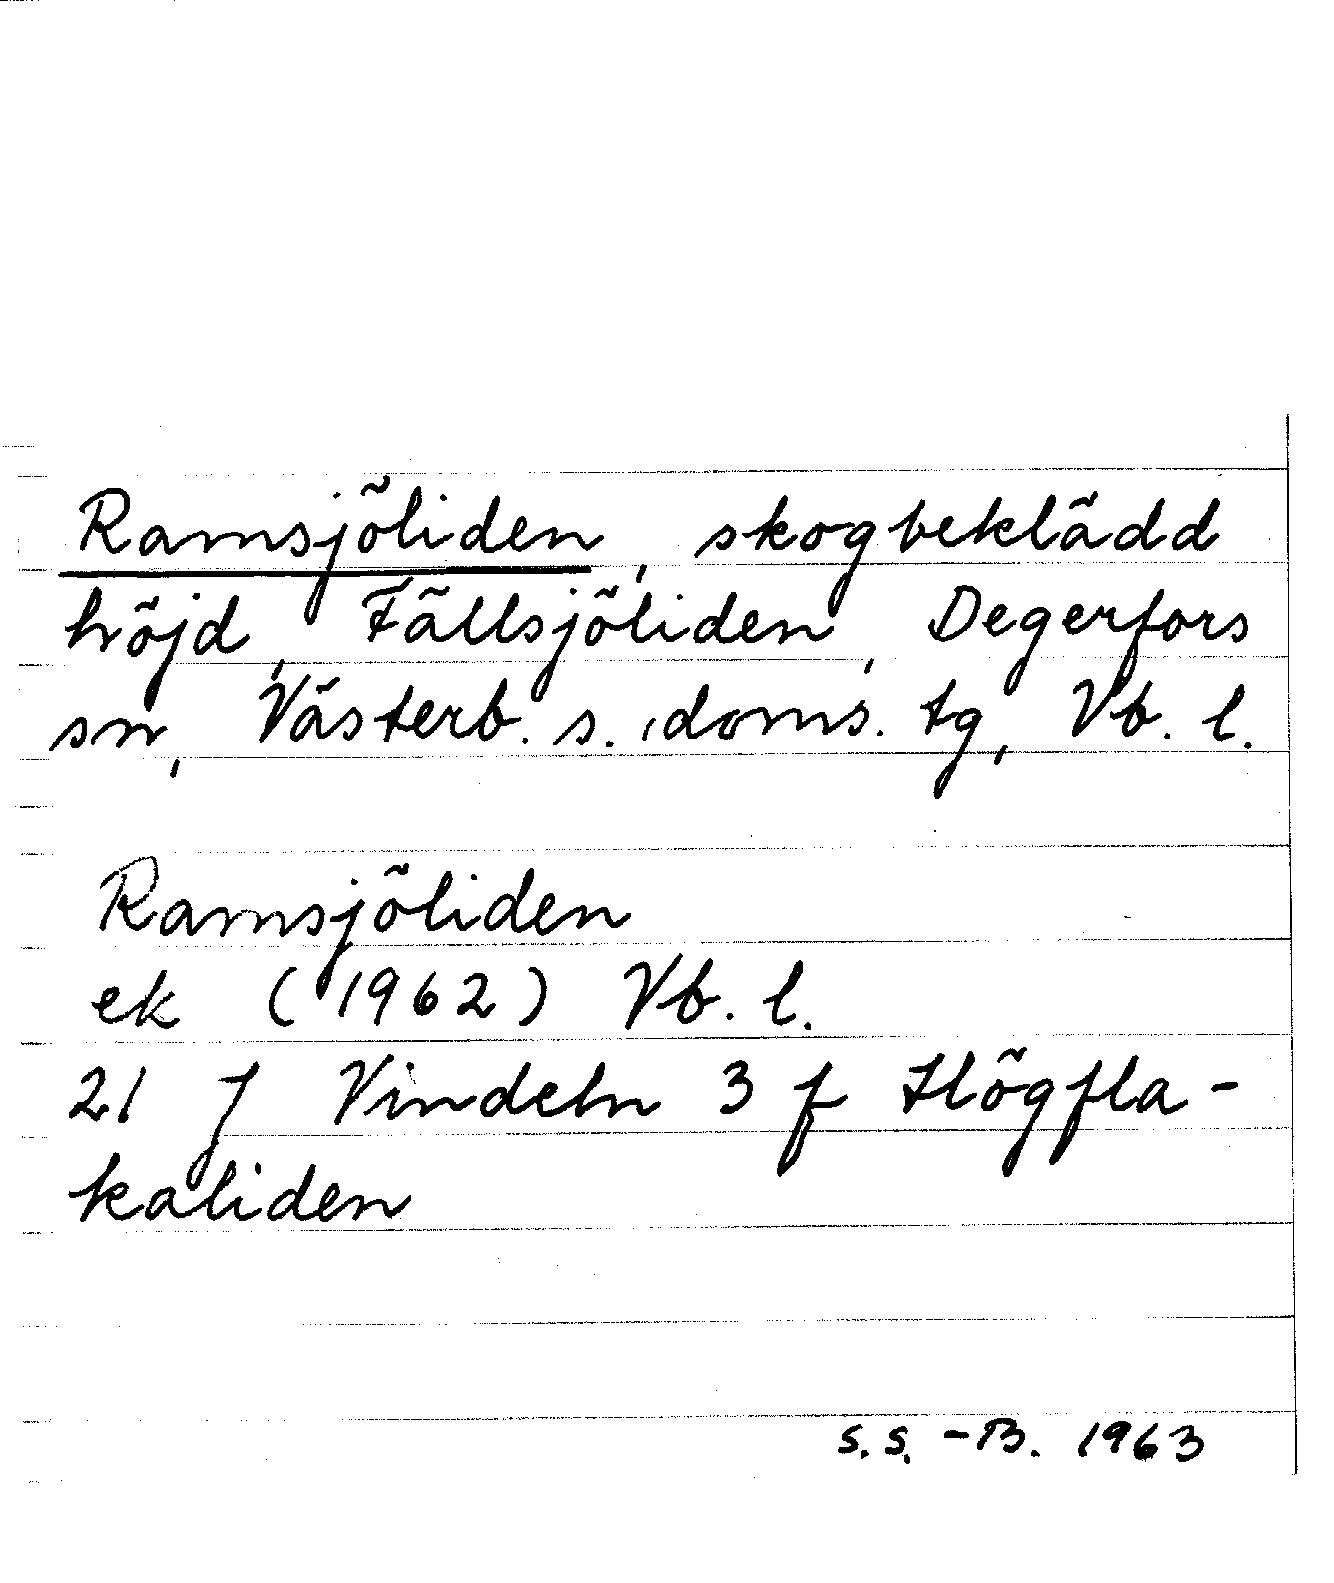 Ramsjöliden, skogbeklädd
höjd, Fällsjöliden, Degerfors
sn, Västerb. s. doms. tg, Vb. l.
Ramsjöliden
ek (1962) Vb. l.
21 J Vindeln 3 f Högfla-
kaliden
S.S.-B. 1963